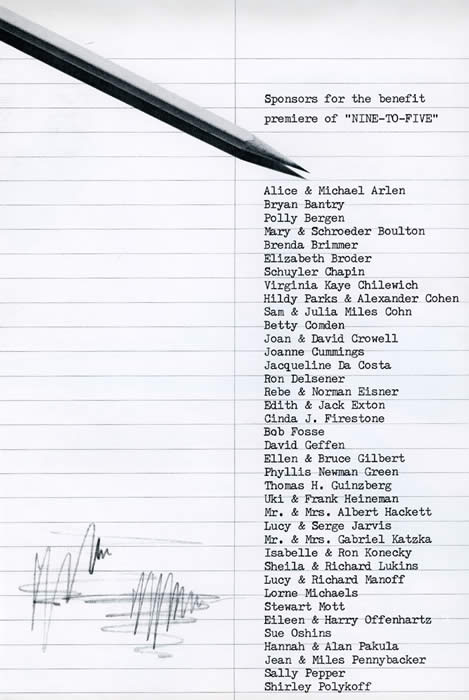 Sponsors for the benefit
premiere of "NINE-TO-FIVE"
Alice & Michael Arlen
Bryan Bantry
Polly Bergen
Mary & Schroeder Boulton
Brenda Brimmer
Elizabeth Broder
Schuyler Chapin
Virginia Kaye Chilewich
Hildy Parks & Alexander Cohen
Sam & Julia Miles Cohn
Betty Comden
Joan & David Crowell
Joanne Cummings
Jacqueline Da Costa
Ron Delsener
Rebe & Norman Eisner
Edith & Jack Exton
Cinda J. Firestone
Bob Fosse
David Geffen
Ellen & Bruce Gilbert
Phyllis Newman Green
Thomas H. Guinzberg
Uki & Frank Heineman
Mr. & Mrs. Albert Hackett
Lucy & Serge Jarvis
Mr. & Mrs. Gabriel Katzka
Isabelle & Ron Konecky
Sheila & Richard Lukins
Lucy & Richard Manoff
Lorne Michaels
Stewart Mott
Eileen & Harry Offenhartz
Sue Oshins
Hannah & Alan Pakula
Jean & Miles Pennybacker
Sally Pepper
Shirley Polykoff